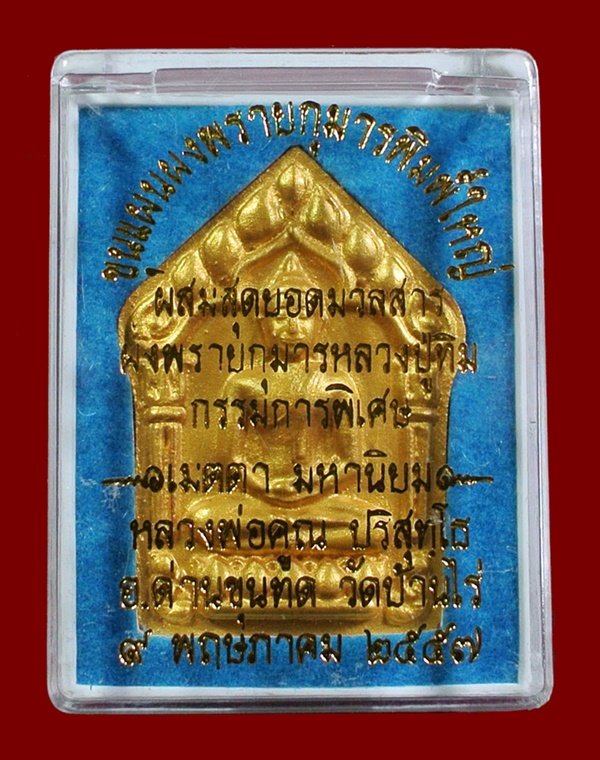 ขุนแผนผงพรายกุมารพิมพ์ใหญ่
ผสมสุดยอดมวลสาร
ผงพรายกุมารหลวงปู่ทิม
กรรมการพิเศษ
เมตตา มหานิยม
หลวงพ่อคูณ ปริสุทฺโธ
อ.ด่านขุนทด วัดบ้านไร่
๙ พฤษภาคม ๒๕๕๗